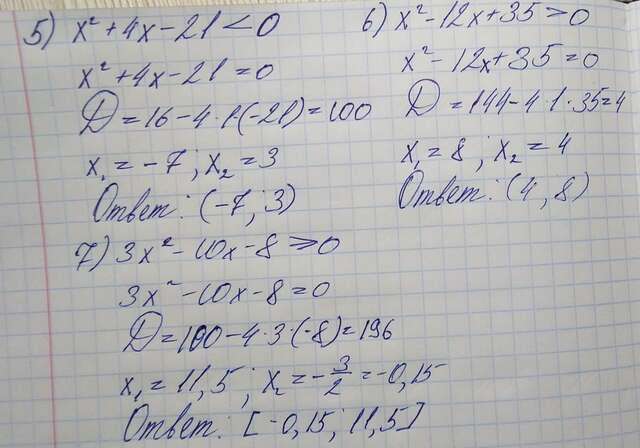 5) x² + 4x - 21 < 0
x² + 4x - 21 = 0
D = 16 - 4·1·(-21) = 100
x₁ = -7; x₂ = 3
Ответ: (-7; 3)
6) x² - 12x + 35 > 0
x² - 12x + 35 = 0
D = 144 - 4·1·35 = 4
x₁ = 8; x₂ = 4
Ответ: (4, 8)
7) 3x² - 10x - 8 ≥ 0
3x² - 10x - 8 = 0
D = 100 - 4·3·(-8) = 196
x₁ = 11,5; x₂ = -3/2 = -0,15
Ответ: [-0,15; 11,5]